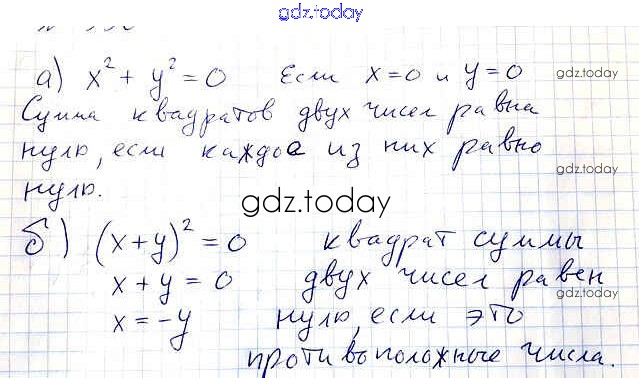 gdz.today
а) x² + y² = 0 Если x = 0 и y = 0
gdz.today
Сумма квадратов двух чисел равна
нулю, если каждое из них равно
gdz.today
нулю.
gdz.today
б) (x + y)² = 0 квадрат суммы
x + y = 0 двух чисел равен
gdz.today
x = -y нулю, если это
противоположные числа.